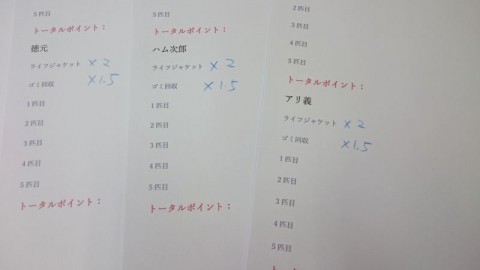 5匹目
トータルポイント：
徳元
ライフジャケット ×2
ゴミ回収 ×1.5
1匹目
2匹目
3匹目
4匹目
5匹目
トータルポイント：
5匹目
トータルポイント：
ハム次郎
ライフジャケット ×2
ゴミ回収 ×1.5
1匹目
2匹目
3匹目
4匹目
5匹目
トータルポイント：
2匹目
3匹目
4匹目
5匹目
トータルポイント：
アリ義
ライフジャケット ×2
ゴミ回収 ×1.5
1匹目
2匹目
3匹目
4匹目
5匹目
トータルポイント：